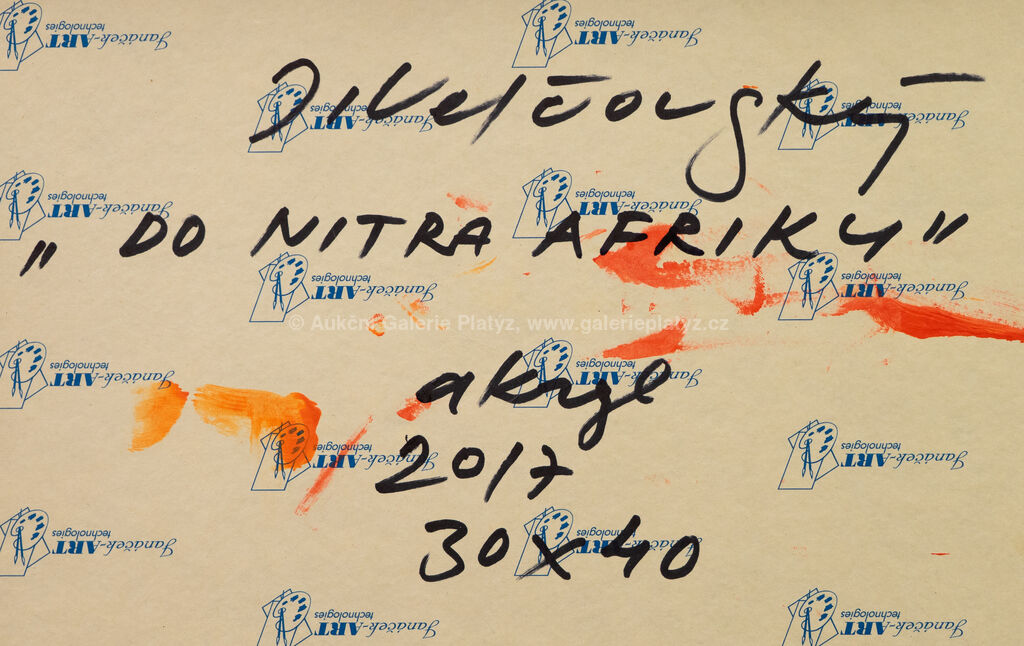 Janáček-ART technologies Janáček-ART technologies
J. Velčovský
Janáček-ART technologies Janáček-ART technologies
Janáček-ART technologies Janáček-ART technologies
„ DO NITRA AFRIKY "
Janáček-ART technologies Janáček-ART technologies
© Aukční Galerie Platýz, www.galerieplatyz.cz
Janáček-ART technologies Janáček-ART technologies
akryl
Janáček-ART technologies Janáček-ART technologies
2017
Janáček-ART technologies Janáček-ART technologies
30x40
Janáček-ART technologies Janáček-ART technologies